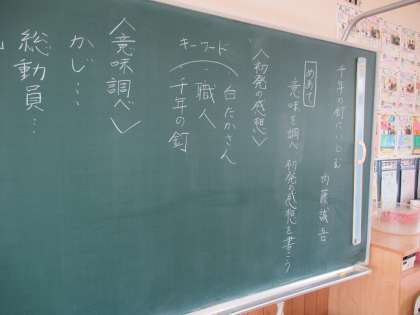 千年の釘にいどむ
内藤誠吾
めあて
意味を調べ 初発の感想を書こう
〈初発の感想〉
キーワード
白たかさん
・職人
・千年の釘
〈意味調べ〉
かじ…
総動員…